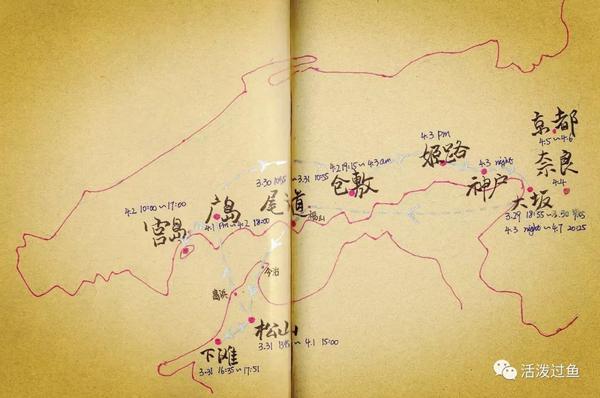 京都
4.5~4.6
奈良
4.4
4.3 PM
姬路
4.3 night
神户
大坂
3.29 18:55~3.30
4.3 night~4.7 20:25
4.2 19:15~4.3 am
仓敷
3.30
3.31 10:55
尾道
福山
广岛
4.1 PM~4.2 18:00
4.2 10:00~17:00
宫岛
今治
高浜
松山
3.31
~4.1 15:00
下滩
3.31 16:35~17:51
活泼过鱼